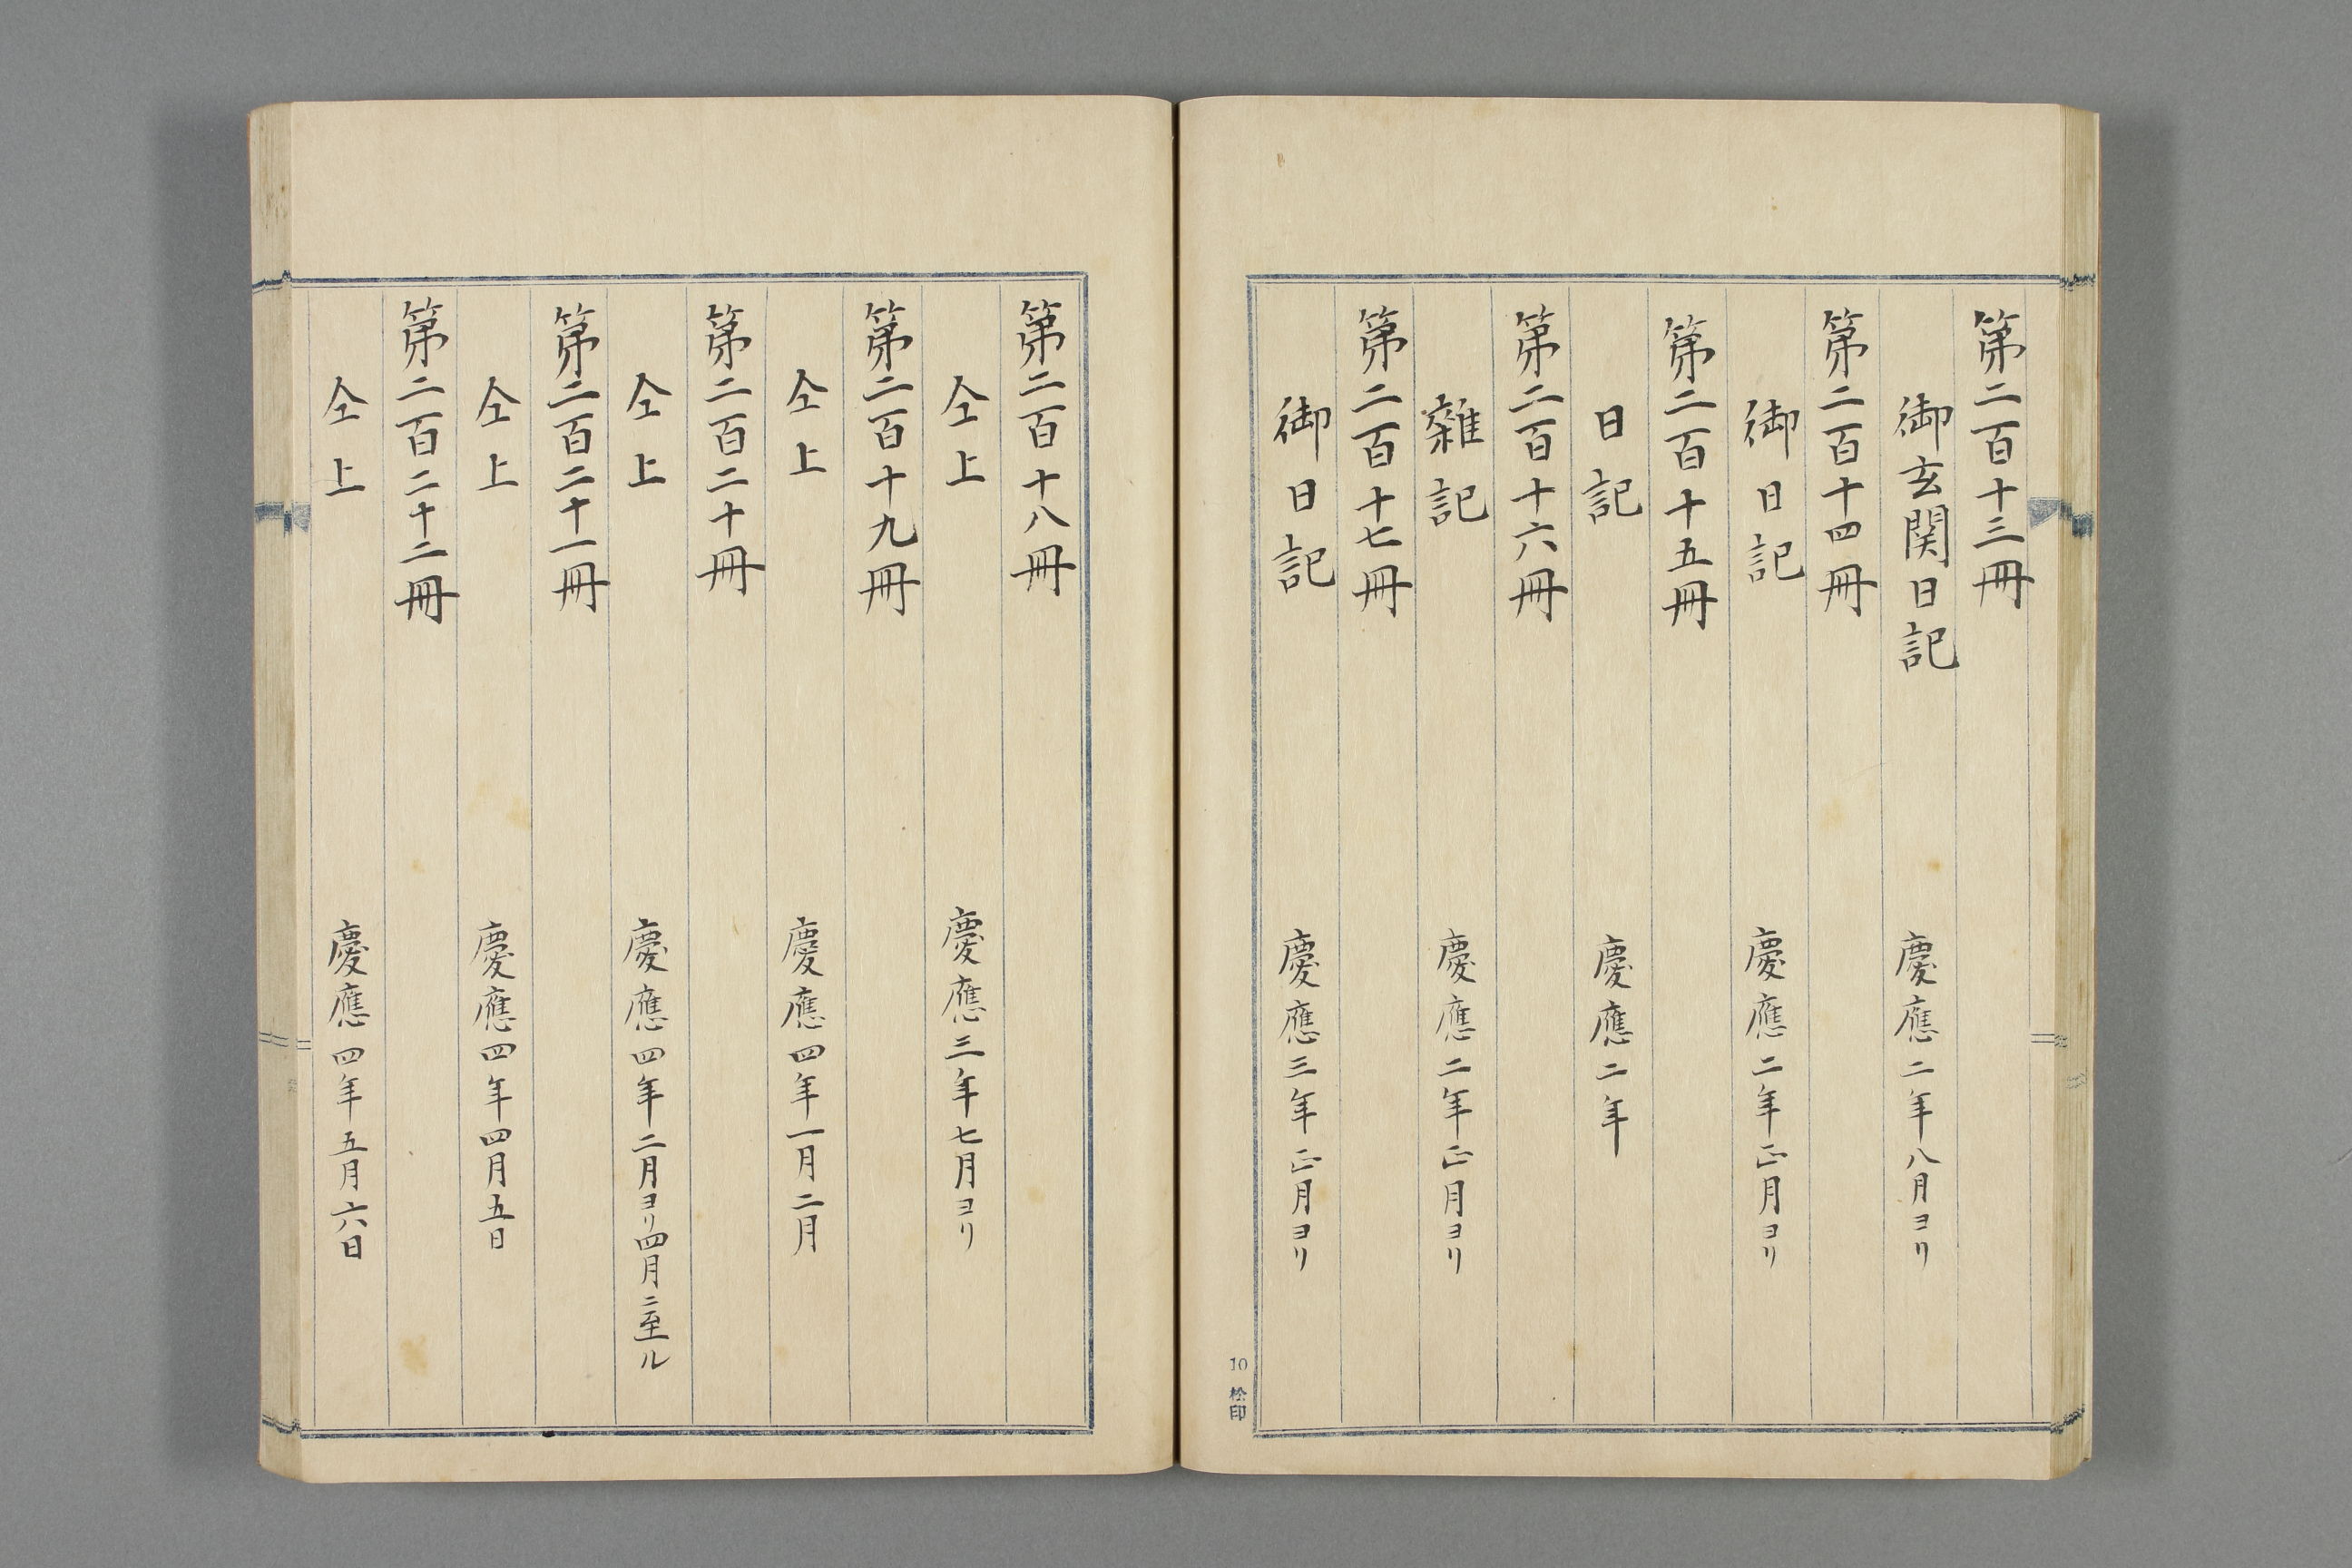 第二百十三冊
御玄関日記 慶應二年八月ヨリ
第二百十四冊
御日記 慶應二年正月ヨリ
第二百十五冊
日記 慶應二年
第二百十六冊
雜記 慶應二年正月ヨリ
第二百十七冊
御日記 慶應三年正月ヨリ
10 松印
第二百十八冊
仝上 慶應三年七月ヨリ
第二百十九冊
仝上 慶應四年一月二月
第二百二十冊
仝上 慶應四年二月ヨリ四月ニ至ル
第二百二十一冊
仝上 慶應四年四月五日
第二百二十二冊
仝上 慶應四年五月六日